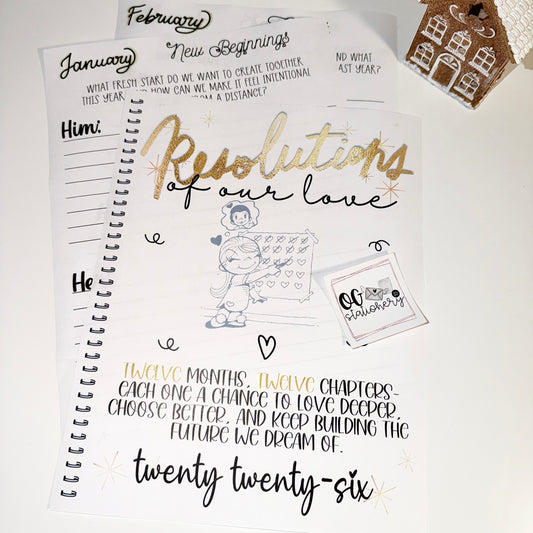 February
January
New Beginnings
WHAT FRESH START DO WE WANT TO CREATE TOGETHER
THIS YEAR, AND HOW CAN WE MAKE IT FEEL INTENTIONAL
FROM A DISTANCE?
ND WHAT
AST YEAR?
Him:
He
Resolutions
of our love
OG
stationery
TWELVE MONTHS, TWELVE CHAPTERS-
EACH ONE A CHANCE TO LOVE DEEPER,
CHOOSE BETTER, AND KEEP BUILDING THE
FUTURE WE DREAM OF.
twenty twenty-six